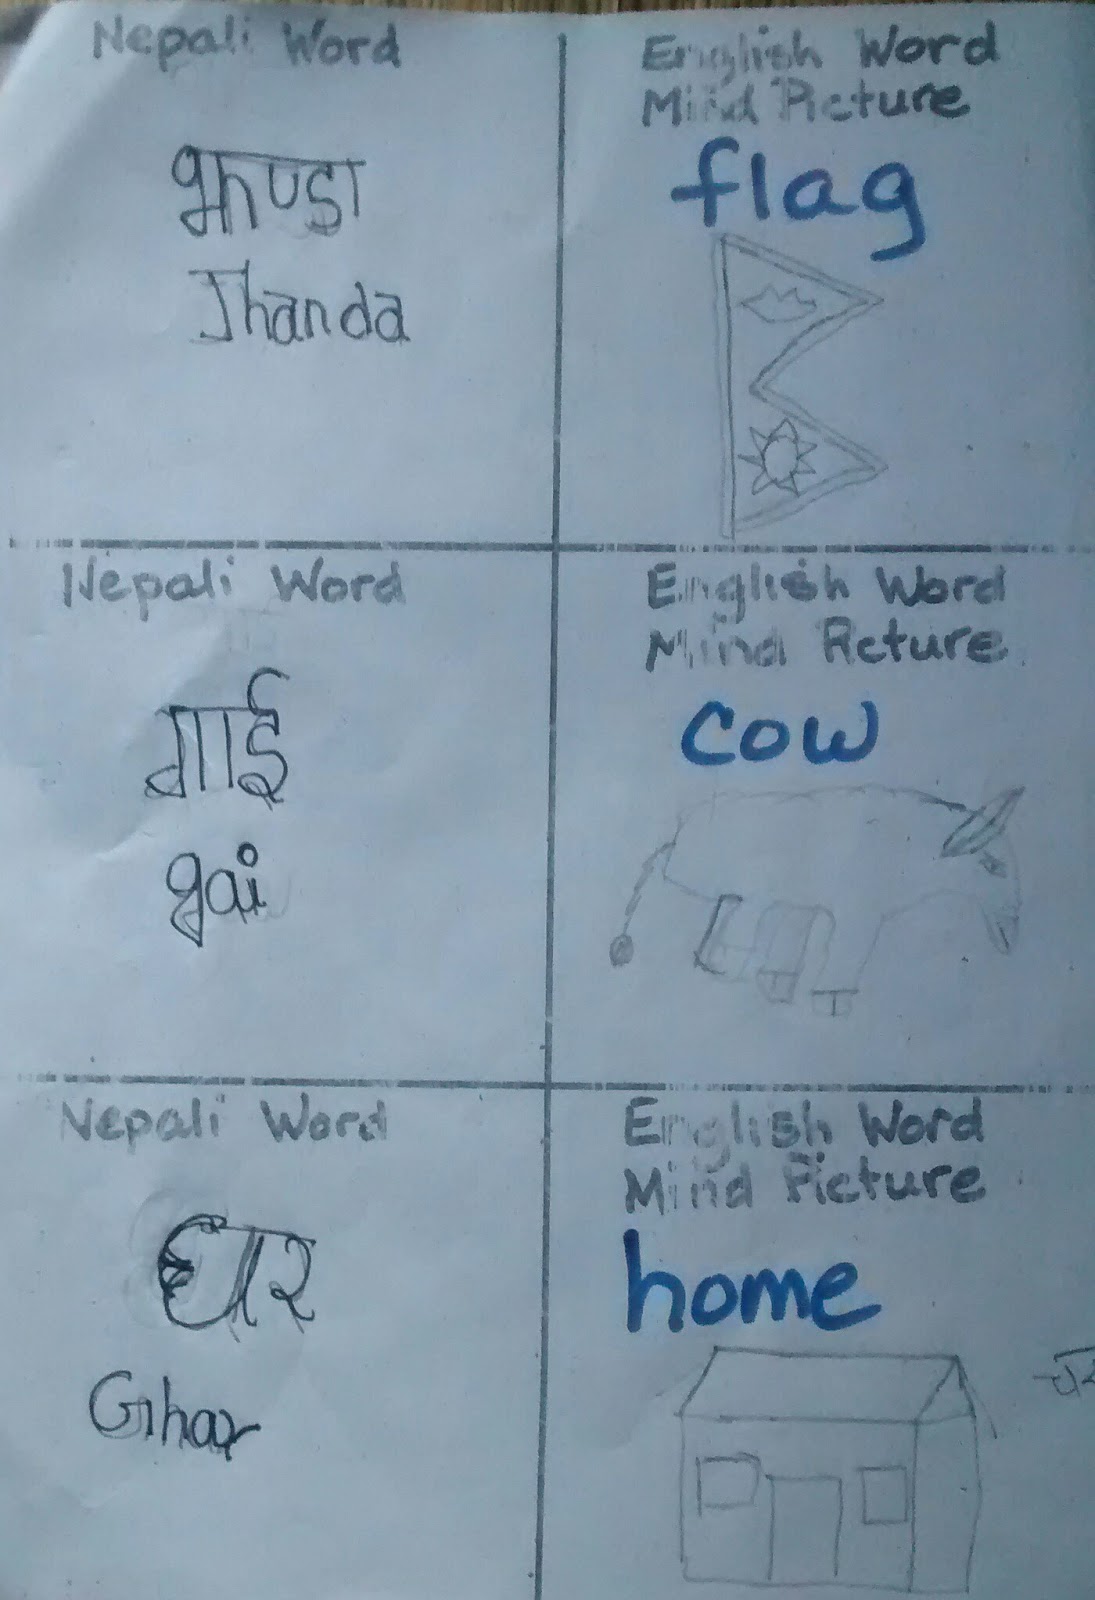 Nepali Word
English Word
Mind Picture
झण्डा
Jhanda
flag
Nepali Word
English Word
Mind Picture
गाई
gai
cow
Nepali Word
English Word
Mind Picture
घर
Ghar
home